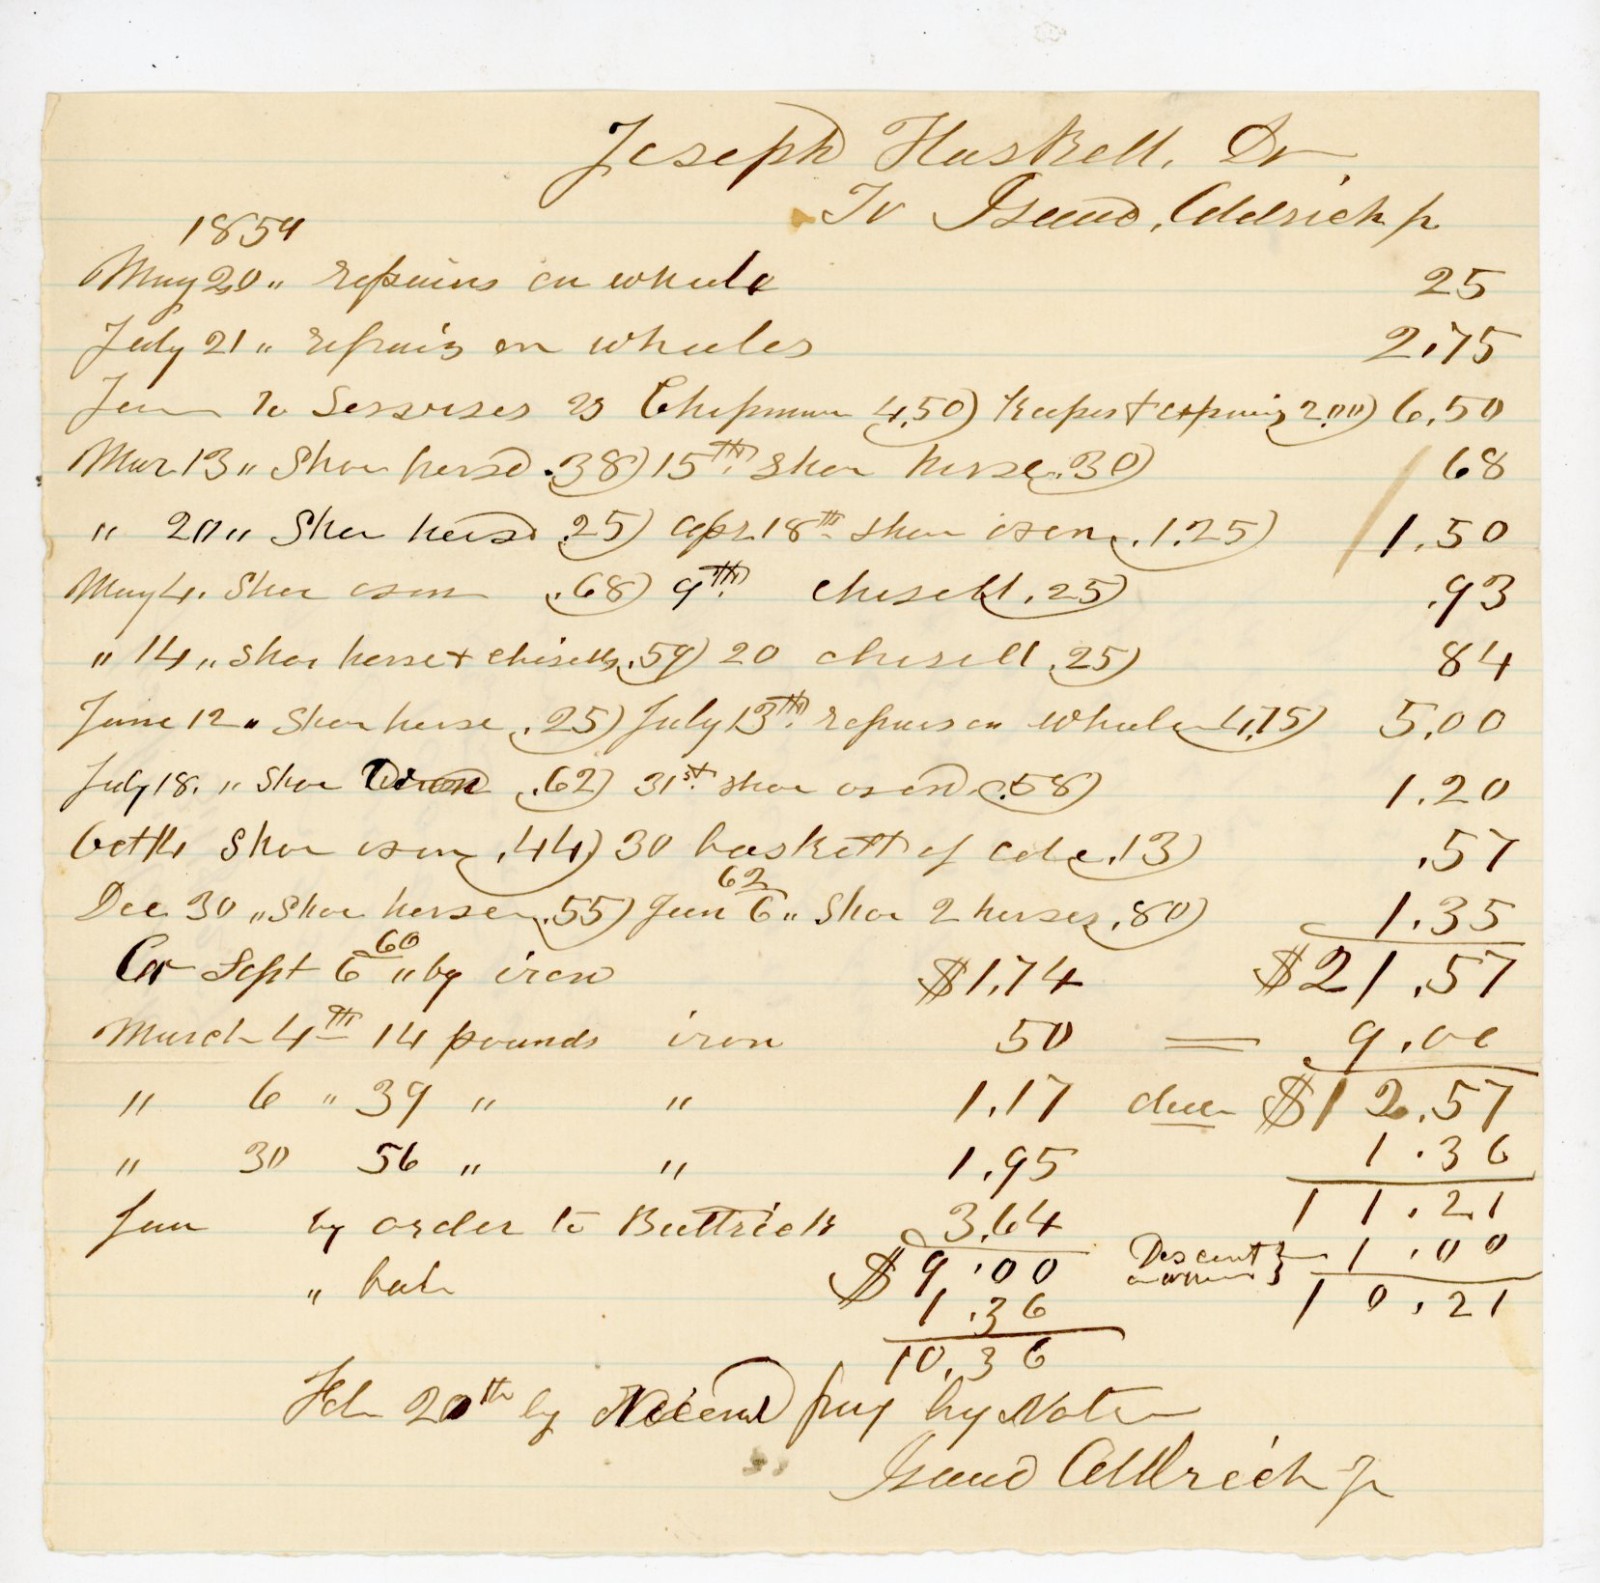 Joseph Haskell, Dr
To Isaac, Aldrich Jr
1859
May 20 " repairs on wheele 25
July 21 " repairs on wheeles 2.75
Jan to Servises Chapman 4,50) Keeper & expenis 2,00) 6,50
Mar 13 " Shoe horse .38) 15th Shoe horse .30) 68
" 20 " Shoe horse .25) apr. 18th shoe oxen .1.25) 1.50
May 4. Shoe oxen .68) 9th chisell .25) .93
" 14 " Shoe horse & chisells .59) 20 chisell .25) 84
June 12 " Shoe horse .25) July 13th repairs on wheeles 4,75) 5,00
July 18. " Shoe oxen .62) 31st shoe oxen .58) 1.20
Oct 14 Shoe oxen .44) 30 baskett of cole .13) .57
62
Dec 30 " Shoe horse .55) Jan 6 " Shoe 2 horses .80) 1.35
60
Cr Sept 6 " by iron $1,74 $21,57
March 4th 14 pounds iron 50 = 9.00
" 6 " 39 " " 1.17 due $12.57
" 30 56 " " 1.95 1.36
Jan by order to Buttrick 3,64 11.21
$9.00 Descount 1.00
" 1.36 10.21
10.36
Feb 20th by Received pay by Note
Isaac Aldrich Jr